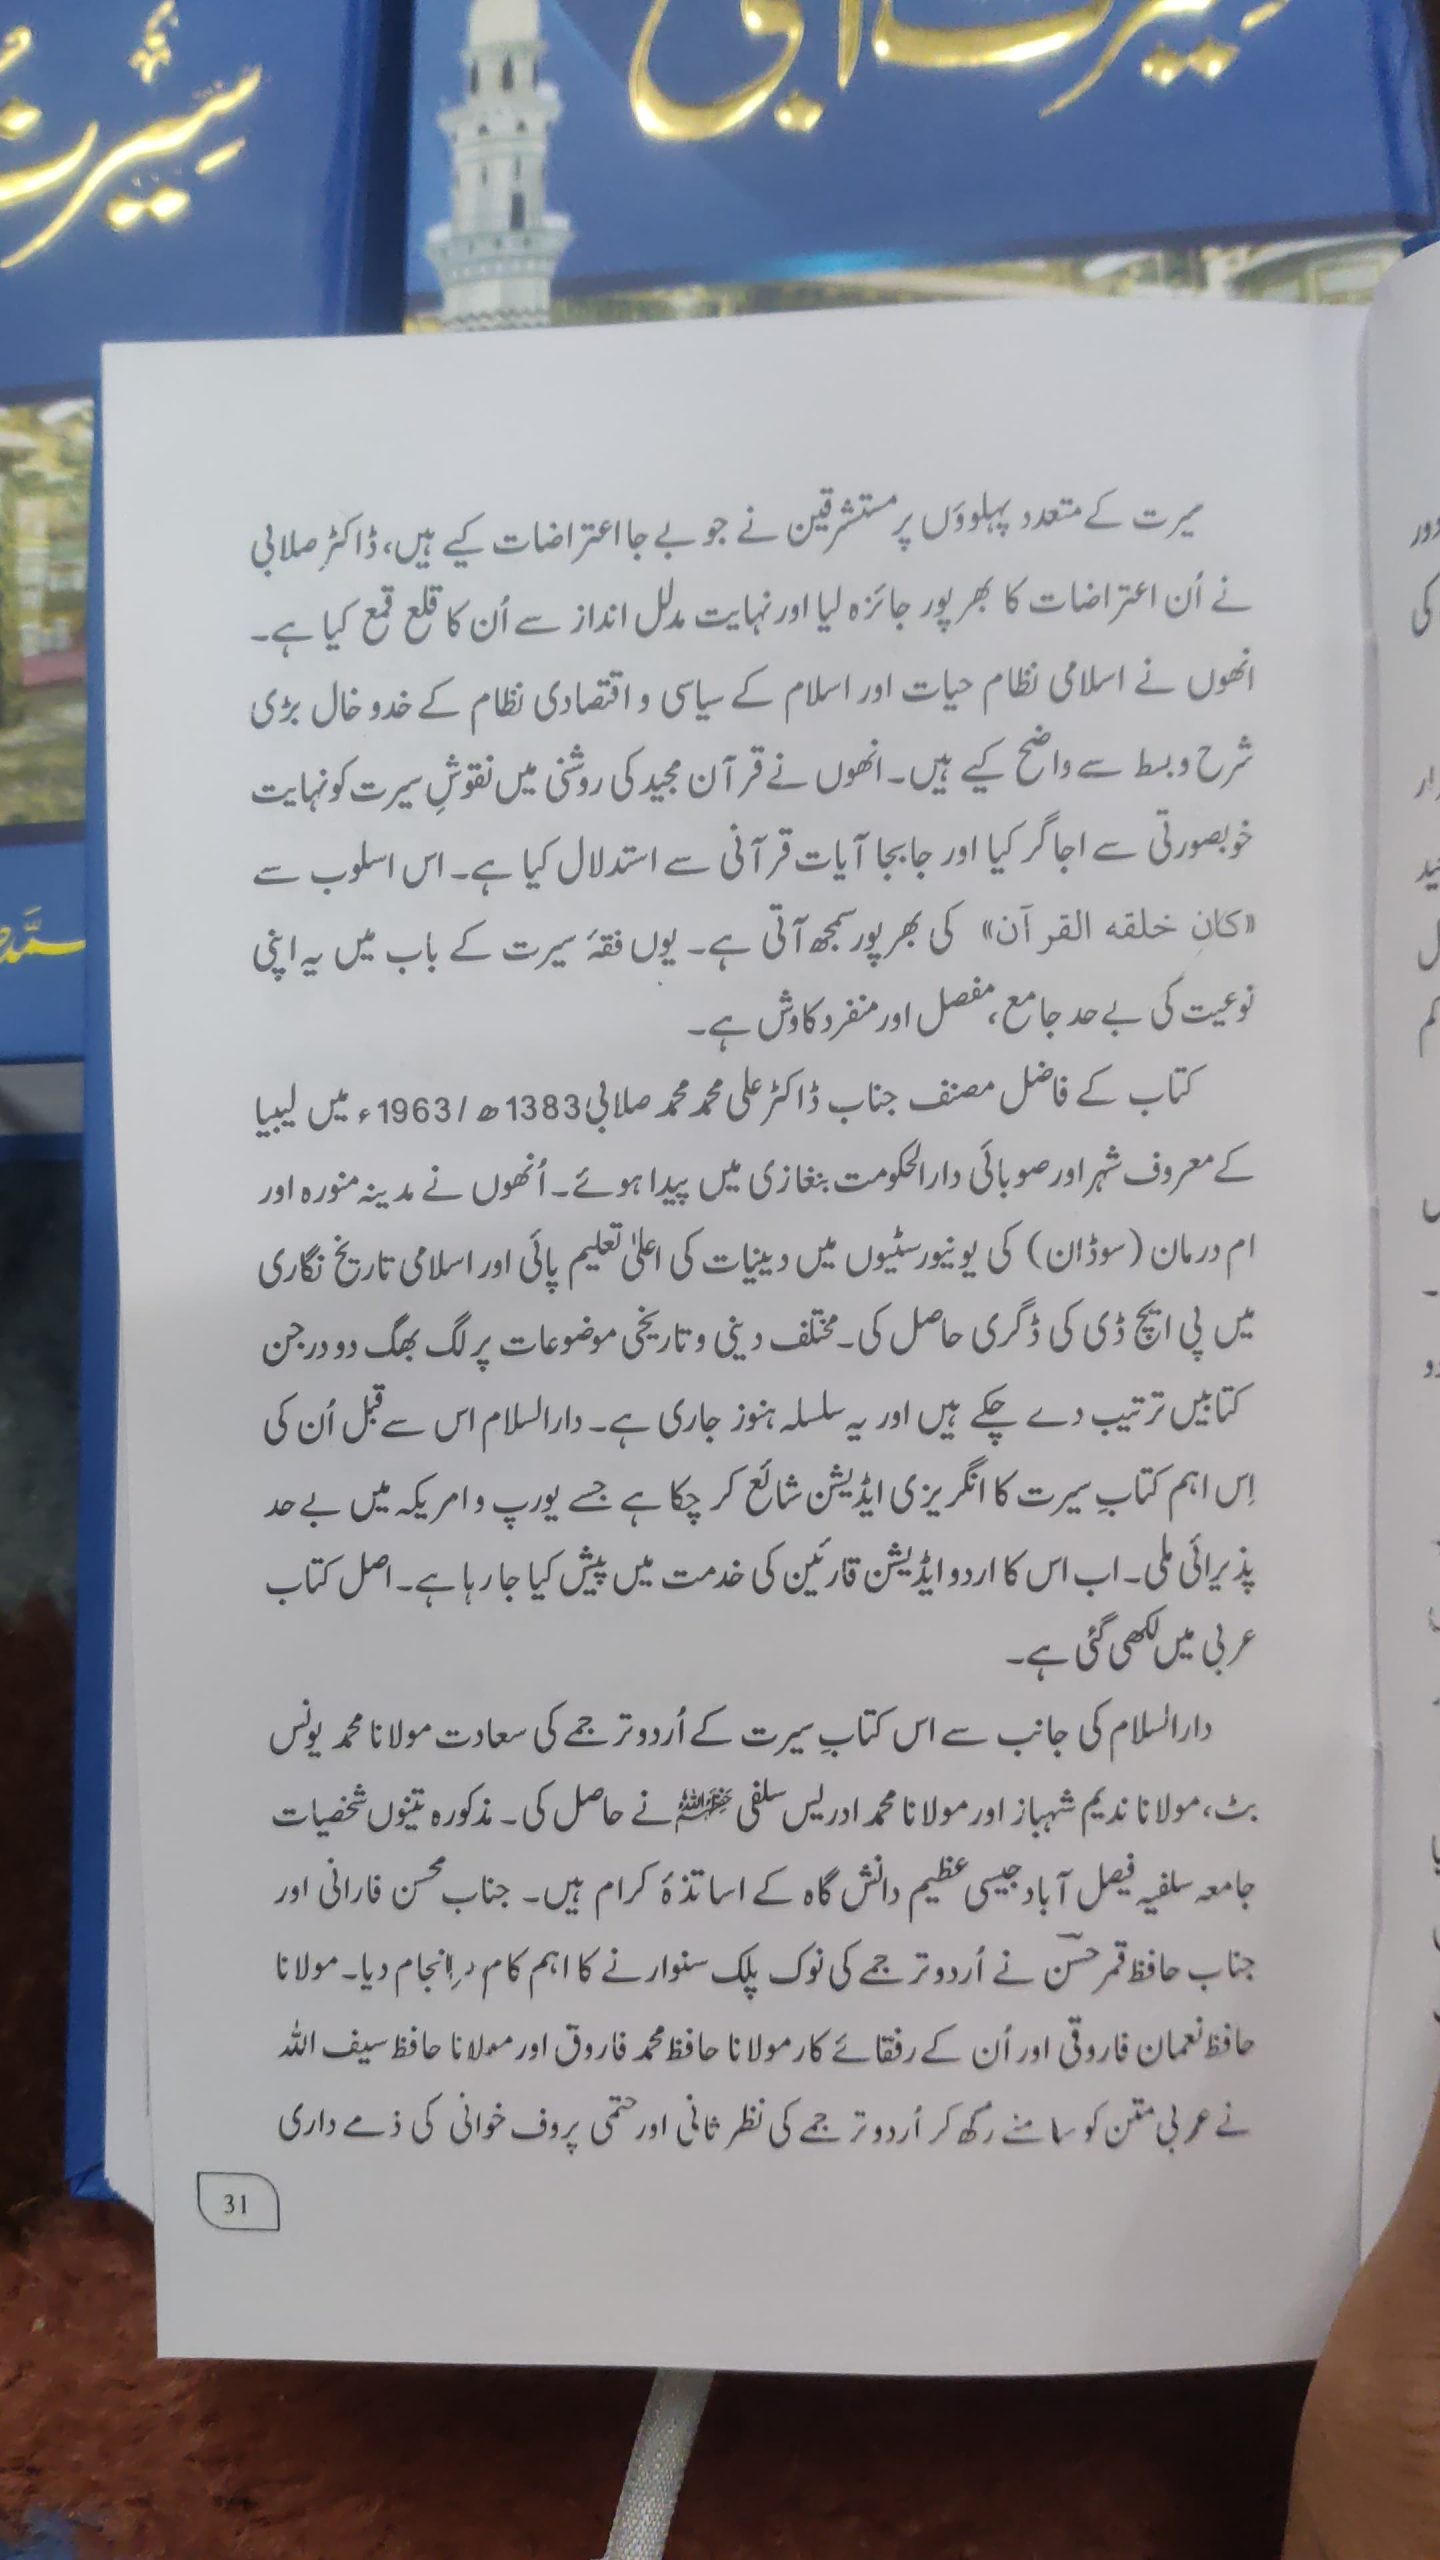 سیرت کے متعدد پہلوؤں پر مستشرقین نے جو بے جا اعتراضات کیے ہیں، ڈاکٹر صلابی
نے اُن اعتراضات کا بھر پور جائزہ لیا اور نہایت مدلل انداز سے اُن کا قلع قمع کیا ہے۔
انھوں نے اسلامی نظام حیات اور اسلام کے سیاسی و اقتصادی نظام کے خدو خال بڑی
شرح و بسط سے واضح کیے ہیں۔ انھوں نے قرآن مجید کی روشنی میں نقوشِ سیرت کو نہایت
خوبصورتی سے اجاگر کیا اور جابجا آیات قرآنی سے استدلال کیا ہے۔ اس اسلوب سے
«کان خلقه القرآن» کی بھر پور سمجھ آتی ہے۔ یوں فقہٗ سیرت کے باب میں یہ اپنی
نوعیت کی بے حد جامع، مفصل اور منفرد کاوش ہے۔
کتاب کے فاضل مصنف جناب ڈاکٹر علی محمد محمد صلابی 1383ھ/1963ء میں لیبیا
کے معروف شہر اور صوبائی دارالحکومت بنغازی میں پیدا ہوئے۔ اُنھوں نے مدینہ منورہ اور
ام درمان (سوڈان) کی یونیورسٹیوں میں دینیات کی اعلیٰ تعلیم پائی اور اسلامی تاریخ نگاری
میں پی ایچ ڈی کی ڈگری حاصل کی۔ مختلف دینی و تاریخی موضوعات پر لگ بھگ دو درجن
کتابیں ترتیب دے چکے ہیں اور یہ سلسلہ ہنوز جاری ہے۔ دارالسلام اس سے قبل اُن کی
اِس اہم کتابِ سیرت کا انگریزی ایڈیشن شائع کر چکا ہے جسے یورپ و امریکہ میں بے حد
پذیرائی ملی۔ اب اس کا اردو ایڈیشن قارئین کی خدمت میں پیش کیا جا رہا ہے۔ اصل کتاب
عربی میں لکھی گئی ہے۔
دارالسلام کی جانب سے اس کتابِ سیرت کے اُردو ترجمے کی سعادت مولانا محمد یونس
بٹ، مولانا ندیم شہباز اور مولانا محمد ادریس سلفی نے حاصل کی۔ مذکورہ تینوں شخصیات
جامعہ سلفیہ فیصل آباد جیسی عظیم دانش گاہ کے اساتذۂ کرام ہیں۔ جناب محسن فارانی اور
جناب حافظ قمر حسن نے اُردو ترجمے کی نوک پلک سنوارنے کا اہم کام انجام دیا۔ مولانا
حافظ نعمان فاروقی اور اُن کے رفقائے کار مولانا حافظ محمد فاروق اور مولانا حافظ سیف اللہ
نے عربی متن کو سامنے رکھ کر اُردو ترجمے کی نظر ثانی اور حتمی پروف خوانی کی ذمے داری
31